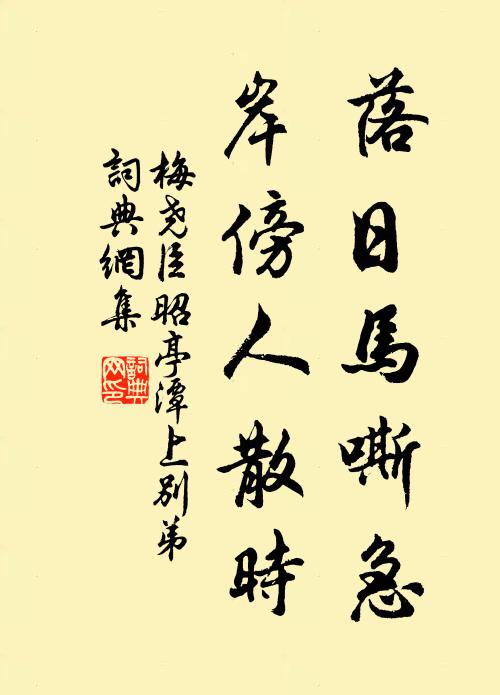 落日馬嘶急
岸傍人散時
梅尧臣昭亭潭上別弟
詞典網集
詞典网印